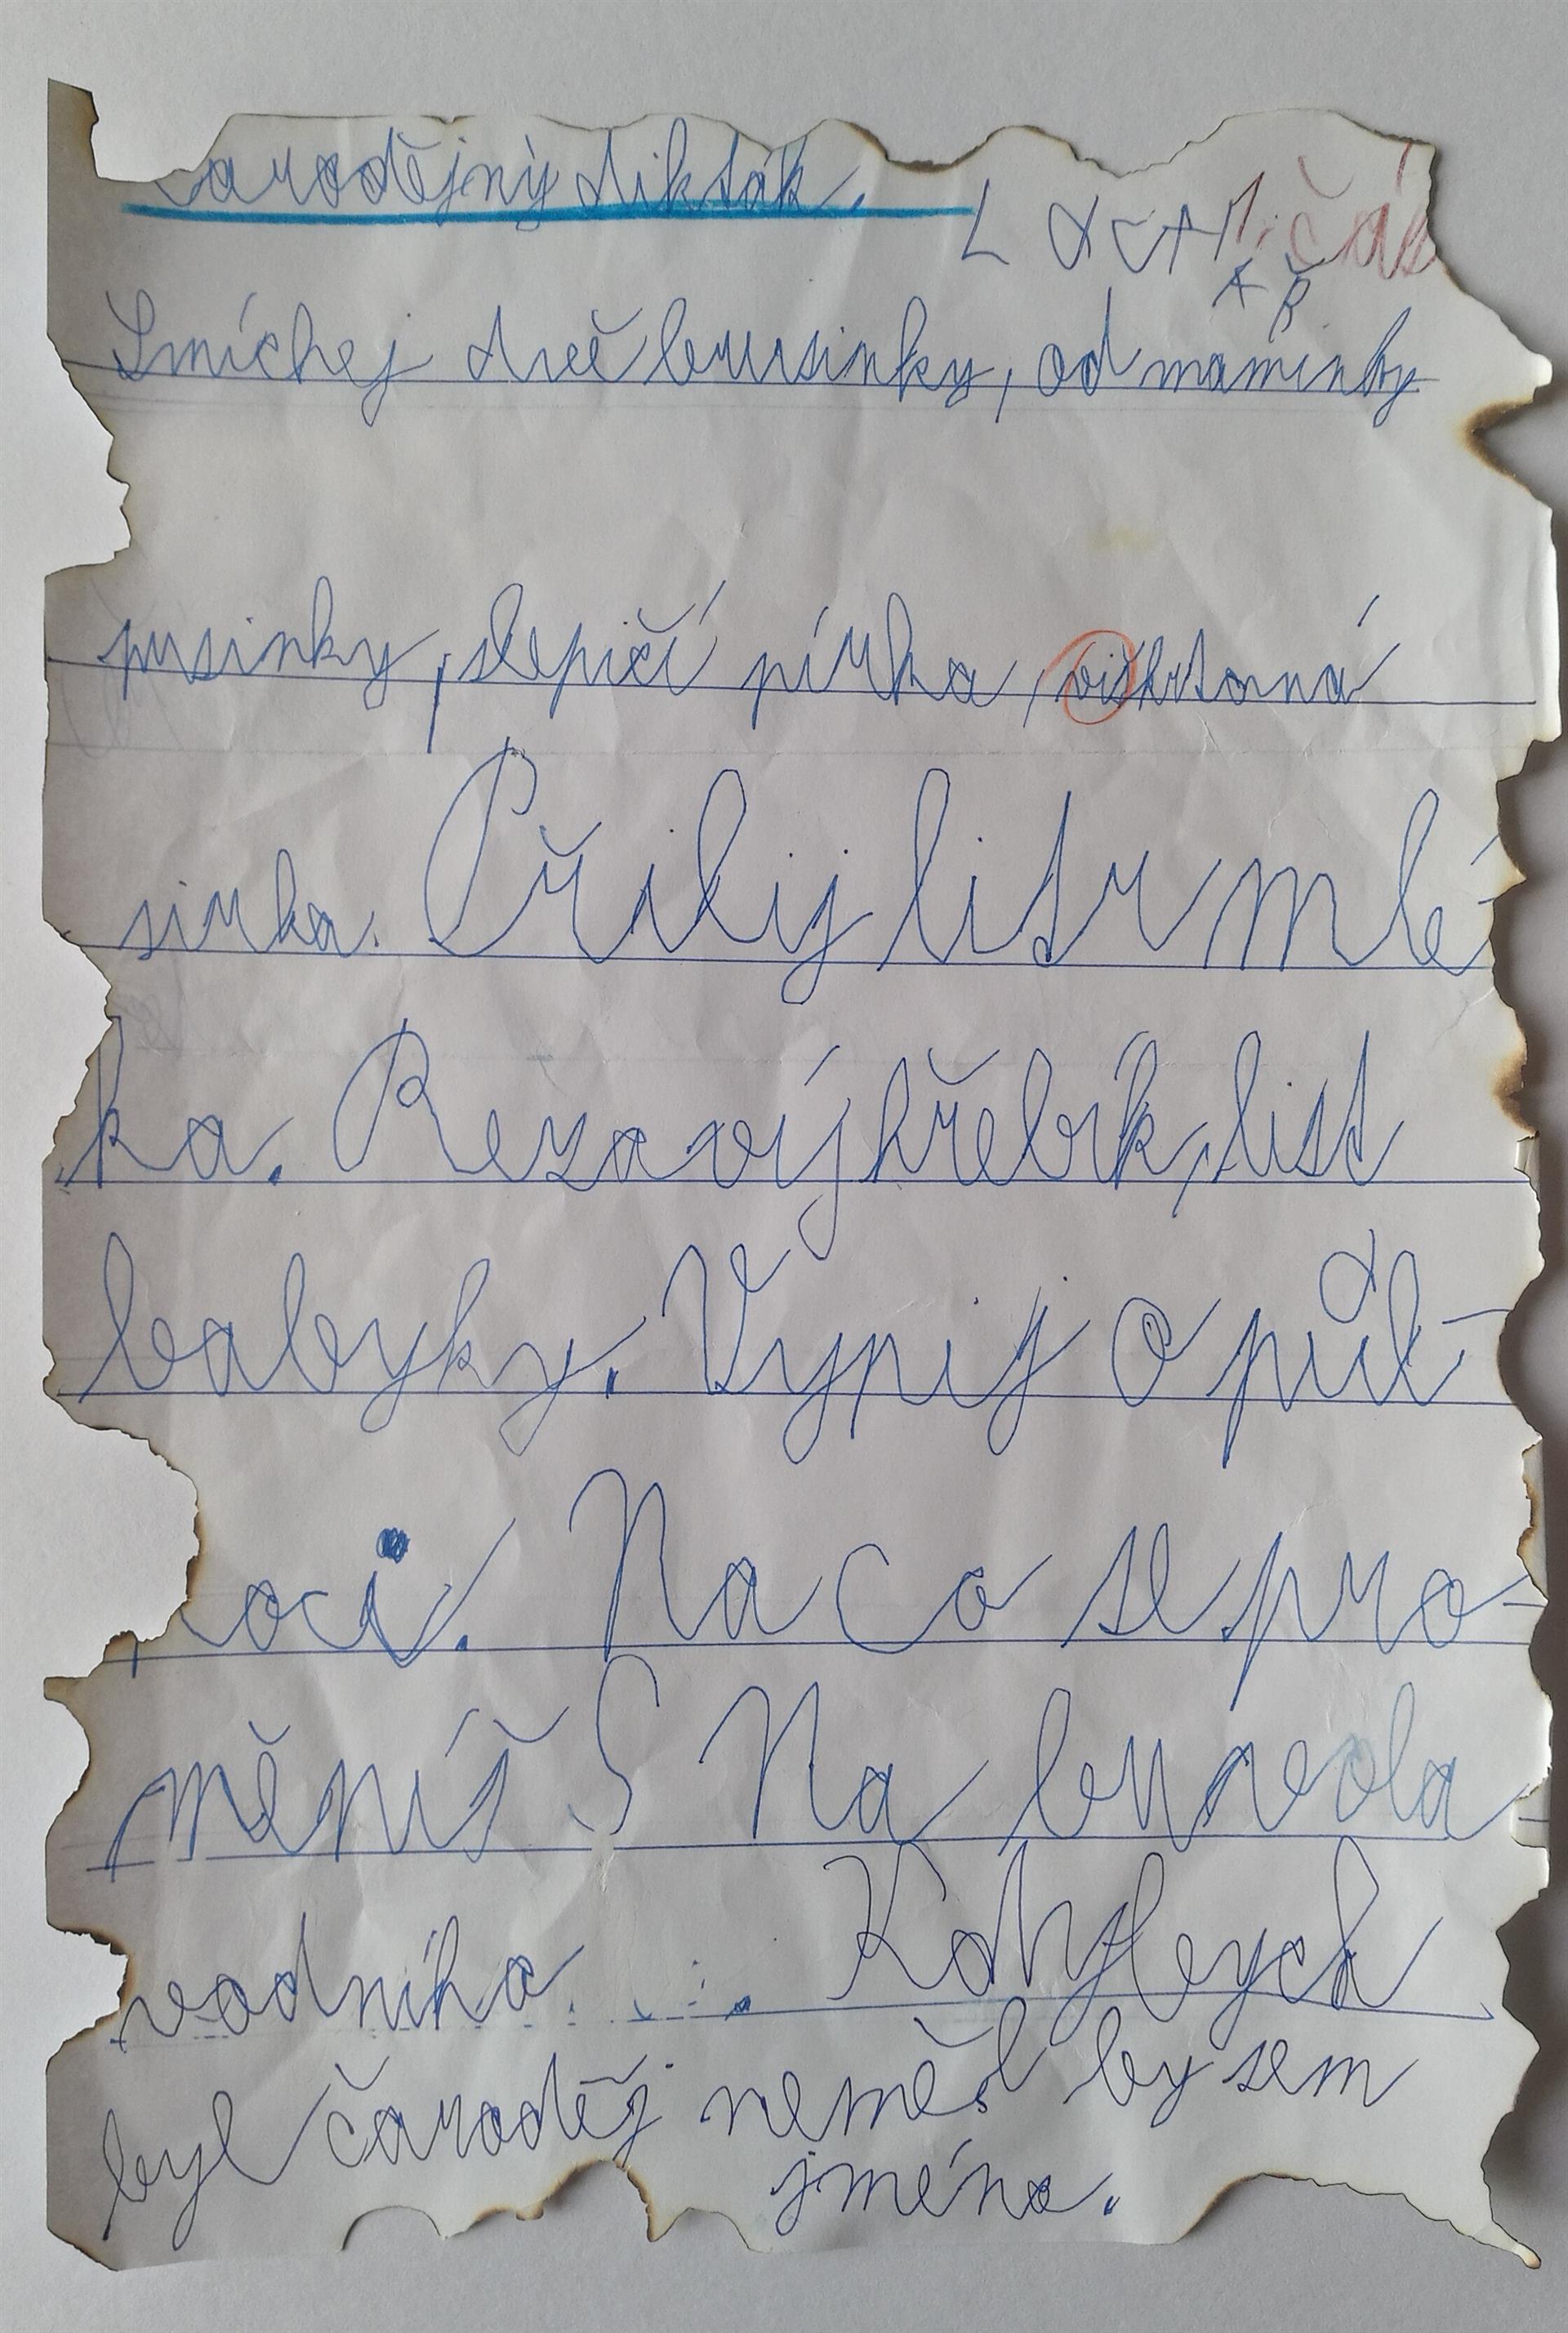 arodějný dikták.
Smíchej dvě brusinky, od maminky
pusinky, slepičí pírka,
sirka. Přilij litr mlé
ka. Rezavý hřebík, list
babyky. Vypij o půl-
oci. Na co se pro-
měníš? Na buvola
vodníka. Kdybych
byl čaroděj neměl by sem
jméno.